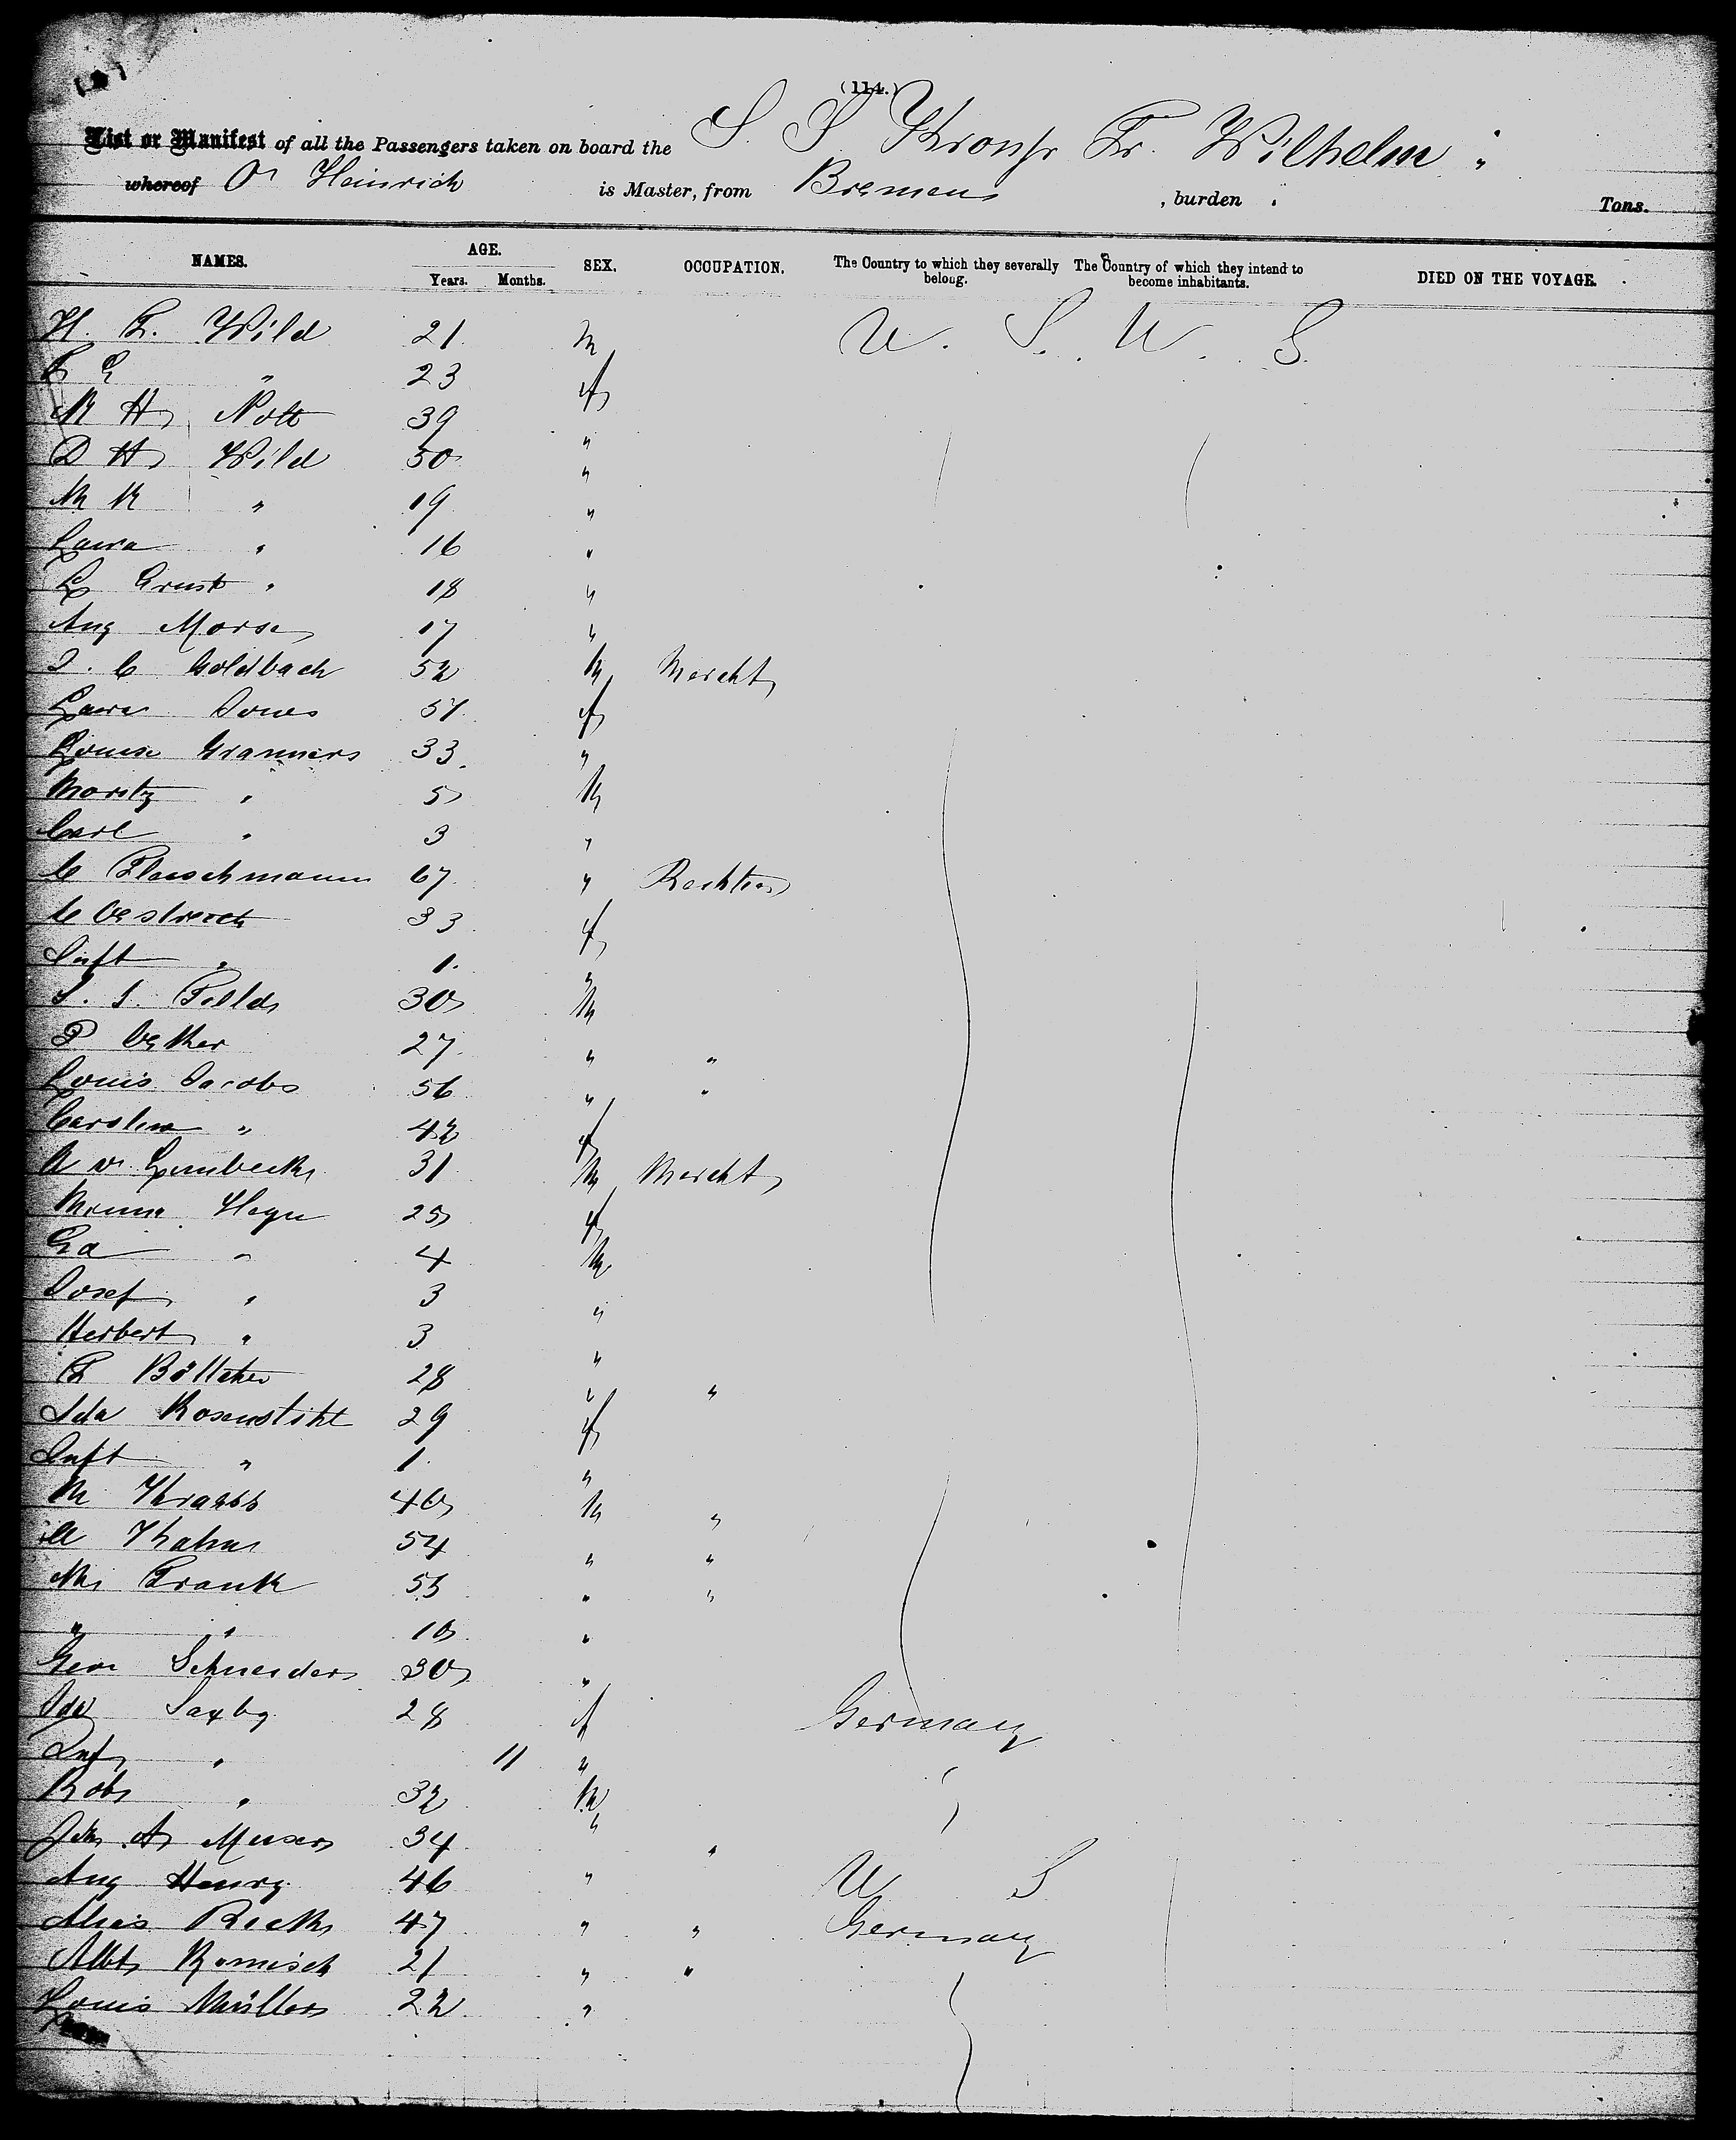 (114.)
List or Manifest of all the Passengers taken on board the S. S. Kronpr Fr. Wilhelm
whereof O Heinrich is Master, from Bremen , burden Tons.
NAMES. AGE. SEX. OCCUPATION. The Country to which they severally belong. The Country of which they intend to become inhabitants. DIED ON THE VOYAGE.
Years. Months.
H. F. Wild 21 M U. S. U. S.
" 23 f
M H Nott 39 "
D H Wild 50 "
M M " 19 "
Laura " 16 "
L Ernst " 18 "
Aug Morse 17 "
J. C Goldbach 52 M Mercht
Laura Jones 51 f
Louise Grammers 33 "
Moritz " 5 M
Carl " 3 "
C Fleischmann 67 "
C 33 f
Inft " 1 "
Fields 30 M
P 27 " "
Louis Jacobs 56 " "
Carolina " 42 f
A v. Lembecke 31 M Mercht
Heyn 25 f
Ed " 4 M
Josef " 3 "
Herbert " 3 "
F Böttcher 28 " "
Ida Rosenstihl 29 f
Inft " 1 "
M 40 M "
A 54 " "
M Frank 55 " "
" " 10 "
Geo Schneider 30 "
Ida Saxby 28 f Germany
Inf " 11 "
Rob " 32 M
A Meuser 34 " "
Aug Henry 46 " U S
47 " " Germany
Albt Romisch 21 " "
Louis Müller 22 "